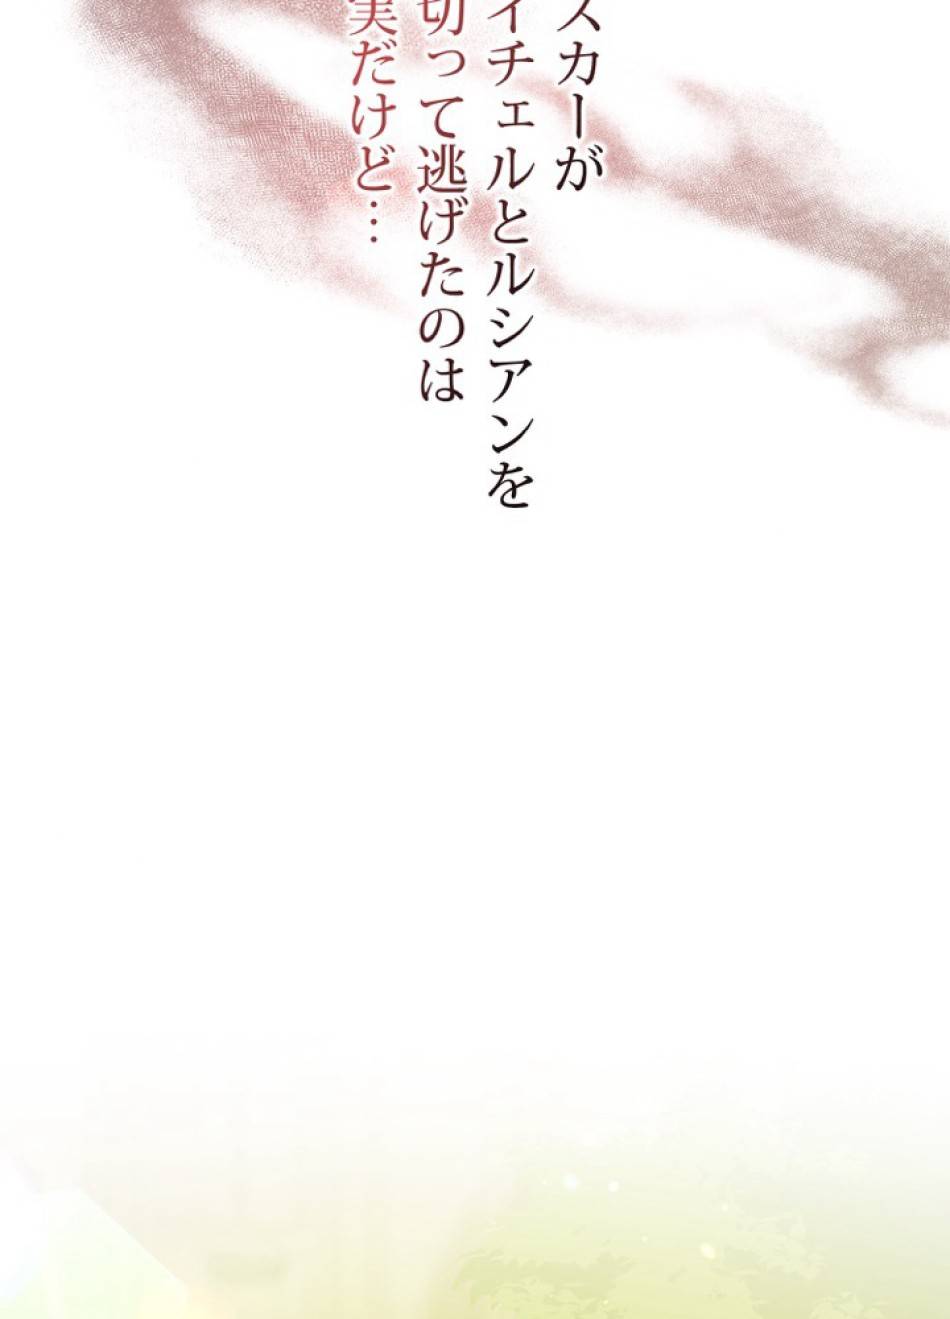 スカーが
イチェルとルシアンを
切って逃げたのは
実だけど…